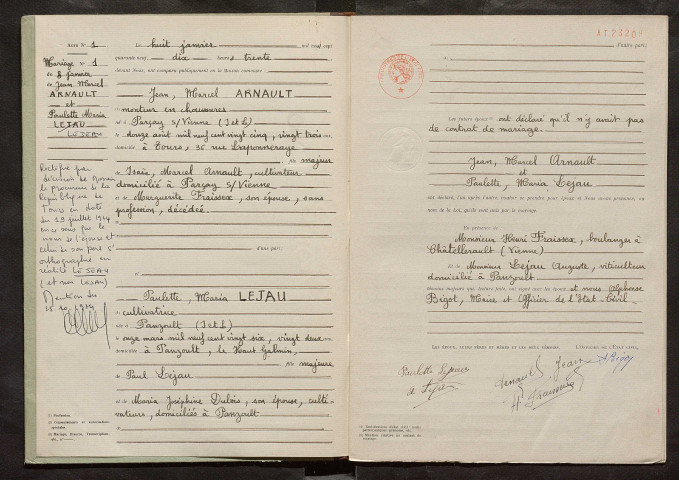 Acte N° 1
Mariage N° 1
du 8 janvier
de Jean Marcel
ARNAULT
et
Paulette Maria
LEJAU
LEJEAU
Rectifié par
décision de Monsieur
le procureur de la
République de
Tours en date
du 19 juillet 1974
en ce sens que le
nom de l'épouse et
celui de son père s'
orthographie en
réalité LEJEAU
(et non LEJAU)
Mention du
Le huit janvier mil neuf cent
quarante neuf, dix heures trente
devant Nous, ont comparu publiquement en la Maison commune :
Jean, Marcel ARNAULT
monteur en chaussures
né à Parçay s/Vienne (I et L)
le douze août mil neuf cent vingt cinq, vingt trois ans
domicilié à Tours, 36 rue Laponneraye
fils majeur
de Isaïe, Marcel Arnault, cultivateur
domicilié à Parçay s/Vienne
et de Marguerite Fraissex, son épouse, sans
profession, décédée.
d'une part;
et
Paulette, Maria LEJAU
cultivatrice
née à Panzoult (I et L)
le onze mars mil neuf cent vingt six, vingt deux ans
domiciliée à Panzoult, le Haut
fille majeure
de Paul Lejau
et de Maria Joséphine Dubois, son épouse, culti-
vateurs, domiciliés à Panzoult
(1) Profession.
d'autre part;
Les futurs époux ont déclaré qu'il n'y avait pas
de contrat de mariage.
Jean, Marcel Arnault
et
Paulette, Maria Lejau
ont déclaré, l'un après l'autre, vouloir se prendre pour époux et Nous avons prononcé, au
nom de la Loi, qu'ils sont unis par le mariage.
En présence de
Monsieur Henri Fraissex, boulanger à
Châtellerault (Vienne)
et de Monsieur Lejau Auguste, viticulteur
domicilié à Panzoult
témoins majeurs qui, lecture faite, ont signé avec les époux et nous Alphonse
Bigot, Maire et Officier de l'Etat-Civil.
Les époux, leurs pères et mères et les deux témoins, L'Officier de l'état civil,